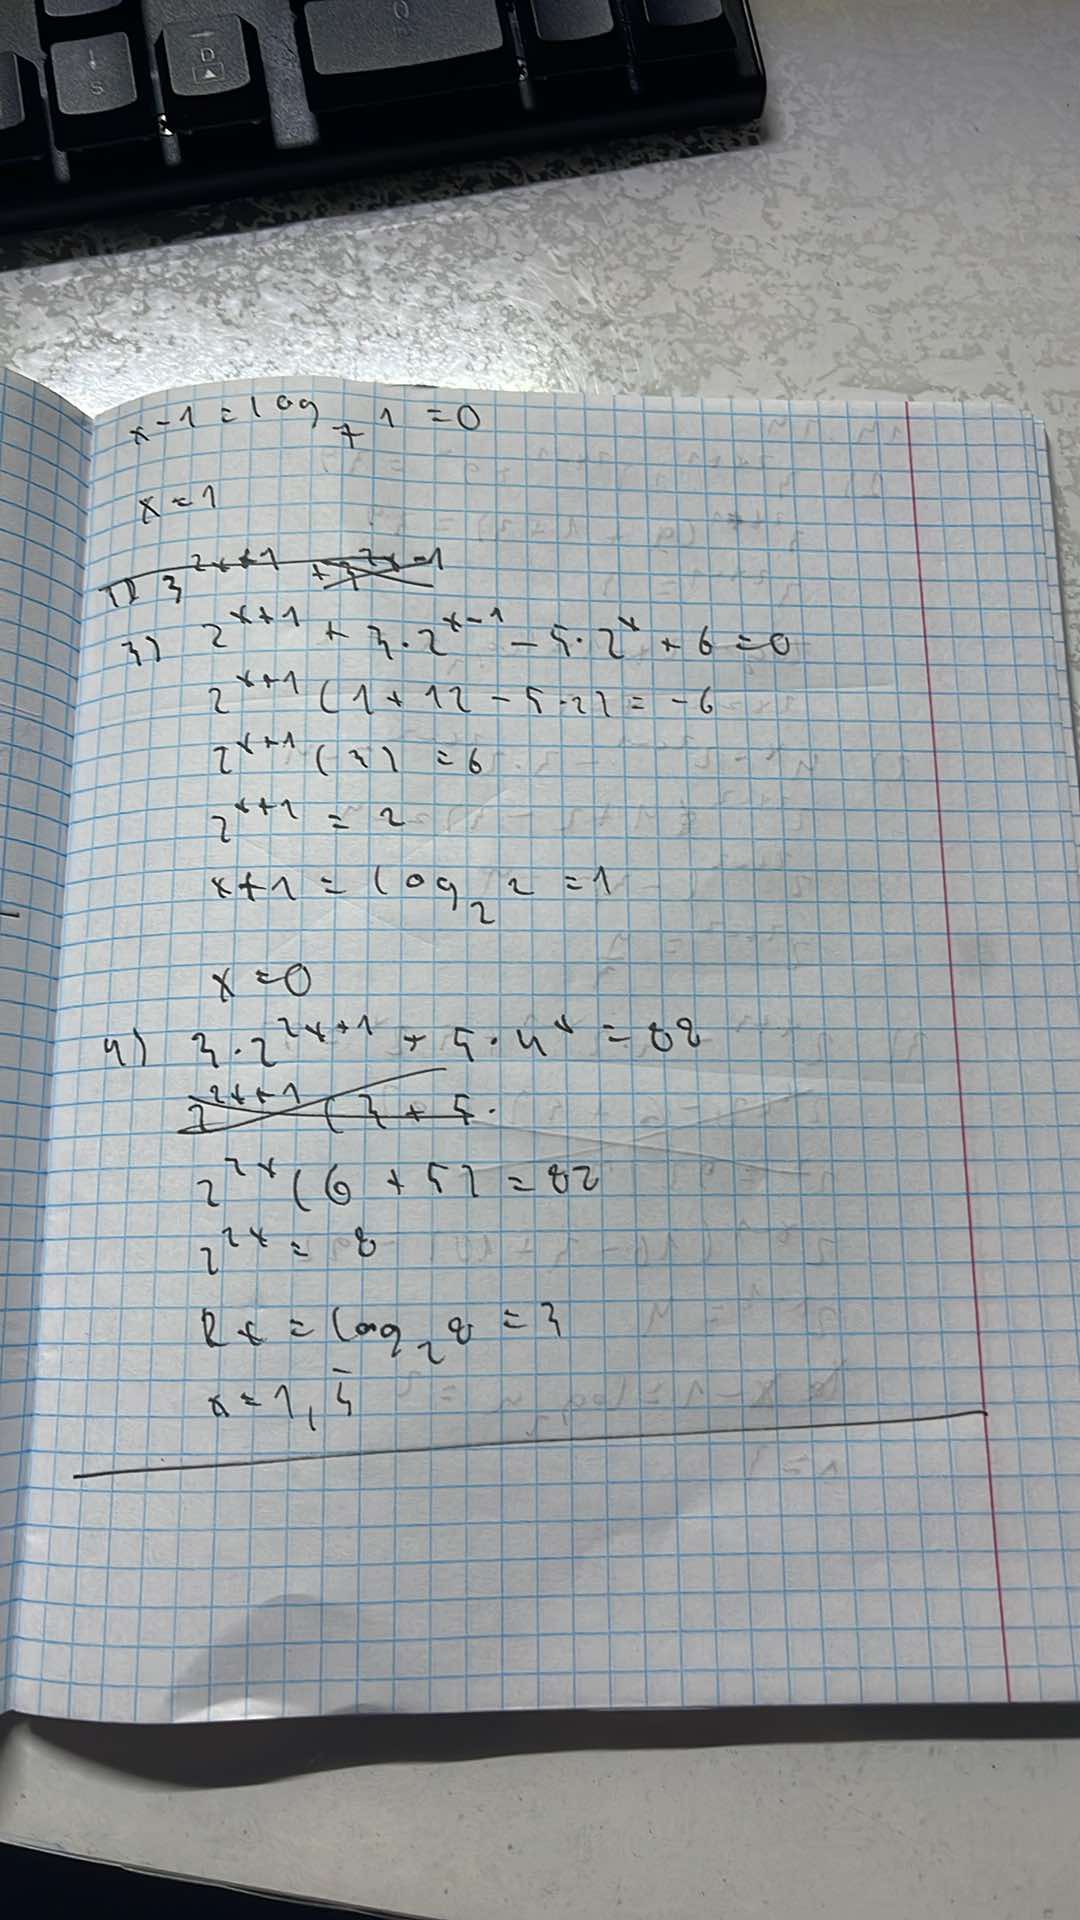 S
D
x-1 = log₇ 1 = 0
x = 1
3^(2x+1) + 3^(2x-1)
3) 2^(x+1) + 3·2^(x-1) - 5·2^x + 6 = 0
2^(x+1) (1 + 12 - 5·2) = -6
2^(x+1) (3) = 6
2^(x+1) = 2
x+1 = log₂ 2 = 1
x = 0
4) 3·2^(2x+1) + 5·4^x = 88
2^(2x+1) (3 + 5·
2^(2x) (6 + 5) = 88
2^(2x) = 8
2x = log₂ 8 = 3
x = 1,5